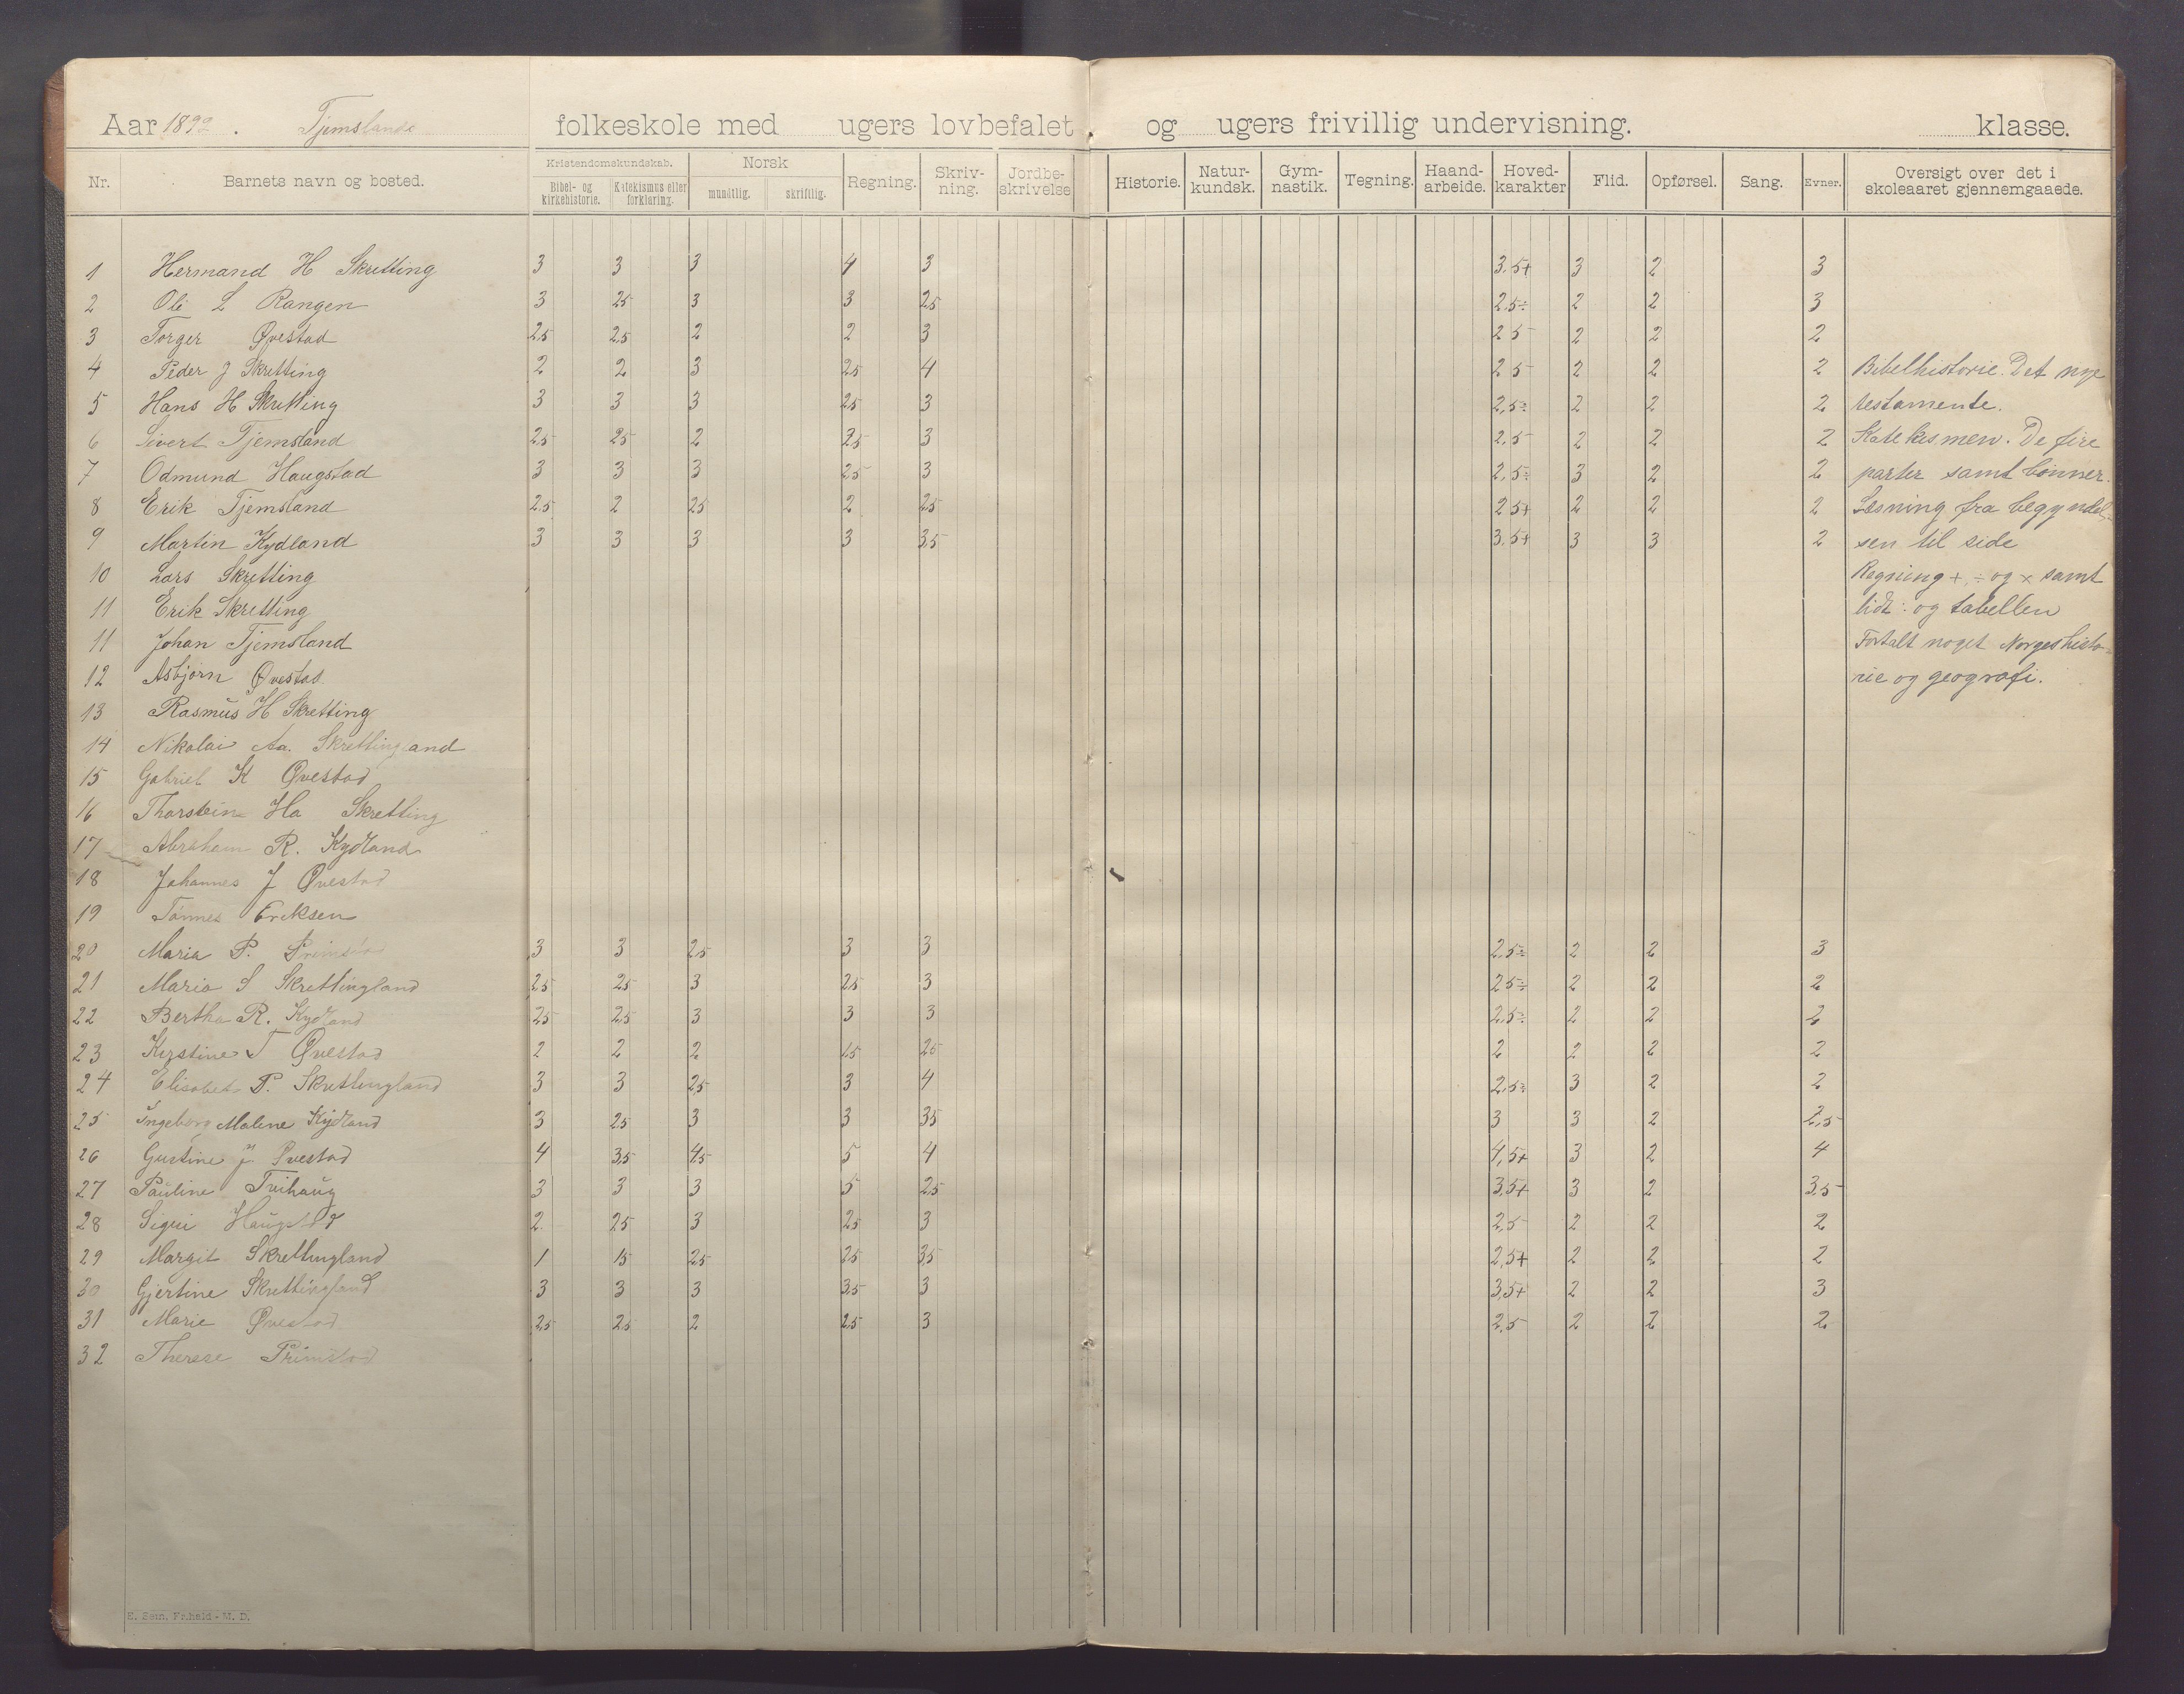 Aar 1892. Tjemslands folkeskole med ugers lovbefalet og ugers frivillig undervisning. klasse.
Nr. Barnets navn og bosted. Kristendomskundskab. Bibel- og kirkehistorie. Katekismus eller forklaring. Norsk mundtlig. skriftlig. Regning. Skriv-ning. Jordbe-skrivelse Historie. Natur-kundsk. Gym-nastik. Tegning. Haand-arbeide. Hoved-karakter Flid. Opførsel. Sang. Evner. Oversigt over det i skoleaaret gjennemgaaede.
1 Hermand H Skretting 3 3 3 4 3 3,5+ 3 2 3
2 Ole L Rangen 3 25 3 3 2,5 2,5÷ 2 2 3
3 Torger Øvestad 2,5 2,5 2 2 3 2 5 2 2 2
4 Peder J Skretting 2 2 3 25 4 2 5 2 2 2 Bibelhistorie. Det nye
5 Hans H Skretting 3 3 3 25 3 2,5÷ 2 2 2 testamente.
6 Sivert Tjemsland 2,5 25 2 25 3 2,5 2 2 2 Katekismen. De fire
7 Odmund Haugstad 3 3 3 2,5 3 2,5÷ 3 2 2 parter samt bønner.
8 Erik Tjemsland 2,5 2 25 2 2,5 2 5+ 2 2 2 Læsning fra begyndel-
9 Martin Kydland 3 3 3 3 3,5 3,5+ 3 3 2 sen til side
10 Lars Skretting Regning +, ÷ og × samt
11 Erik Skretting lidt : og tabellen
11 Johan Tjemsland Fortalt noget Norgeshisto-
12 Asbjørn Øvestad rie og geografi.
13 Rasmus H Skretting
14 Nikolai Aa. Skrettingland
15 Gabriel K Øvestad
16 Thorstein Ha Skretting
17 Abraham R. Kydland
18 Johannes J Øvestad
19 Tønnes Eriksen
20 Maria P. 3 3 2,5 3 3 2,5÷ 2 2 3
21 Maria S Skrettingland 2,5 25 3 2,5 3 2 5÷ 2 2 2
22 Bertha R. Kydland 25 2,5 3 3 3 2,5÷ 2 2 2
23 Kirstine T Øvestad 2 2 2 1,5 25 2 2 2 2
24 Elisabet P. Skrettingland 3 3 2,5 3 4 2,5÷ 3 2 2
25 Ingeborg Malene Kydland 3 25 3 3 35 3 3 2 2,5
26 Gustine J. Øvestad 4 3,5 4,5 5 4 4,5+ 3 2 4
27 Pauline Tvihaug 3 3 3 5 2,5 3,5+ 3 2 3,5
28 Signi Haugstad 2 25 3 25 3 2,5 2 2 2
29 Margit Skrettingland 1 15 25 25 35 2,5+ 2 2 2
30 Gjertine Skrettingland 3 3 3 3,5 3 3,5+ 2 2 3
31 Marie Øvestad 2,5 2,5 2 2,5 3 2,5 2 2 2
32 Therese Primstad
E. Sem. Fr.hald - M. D.